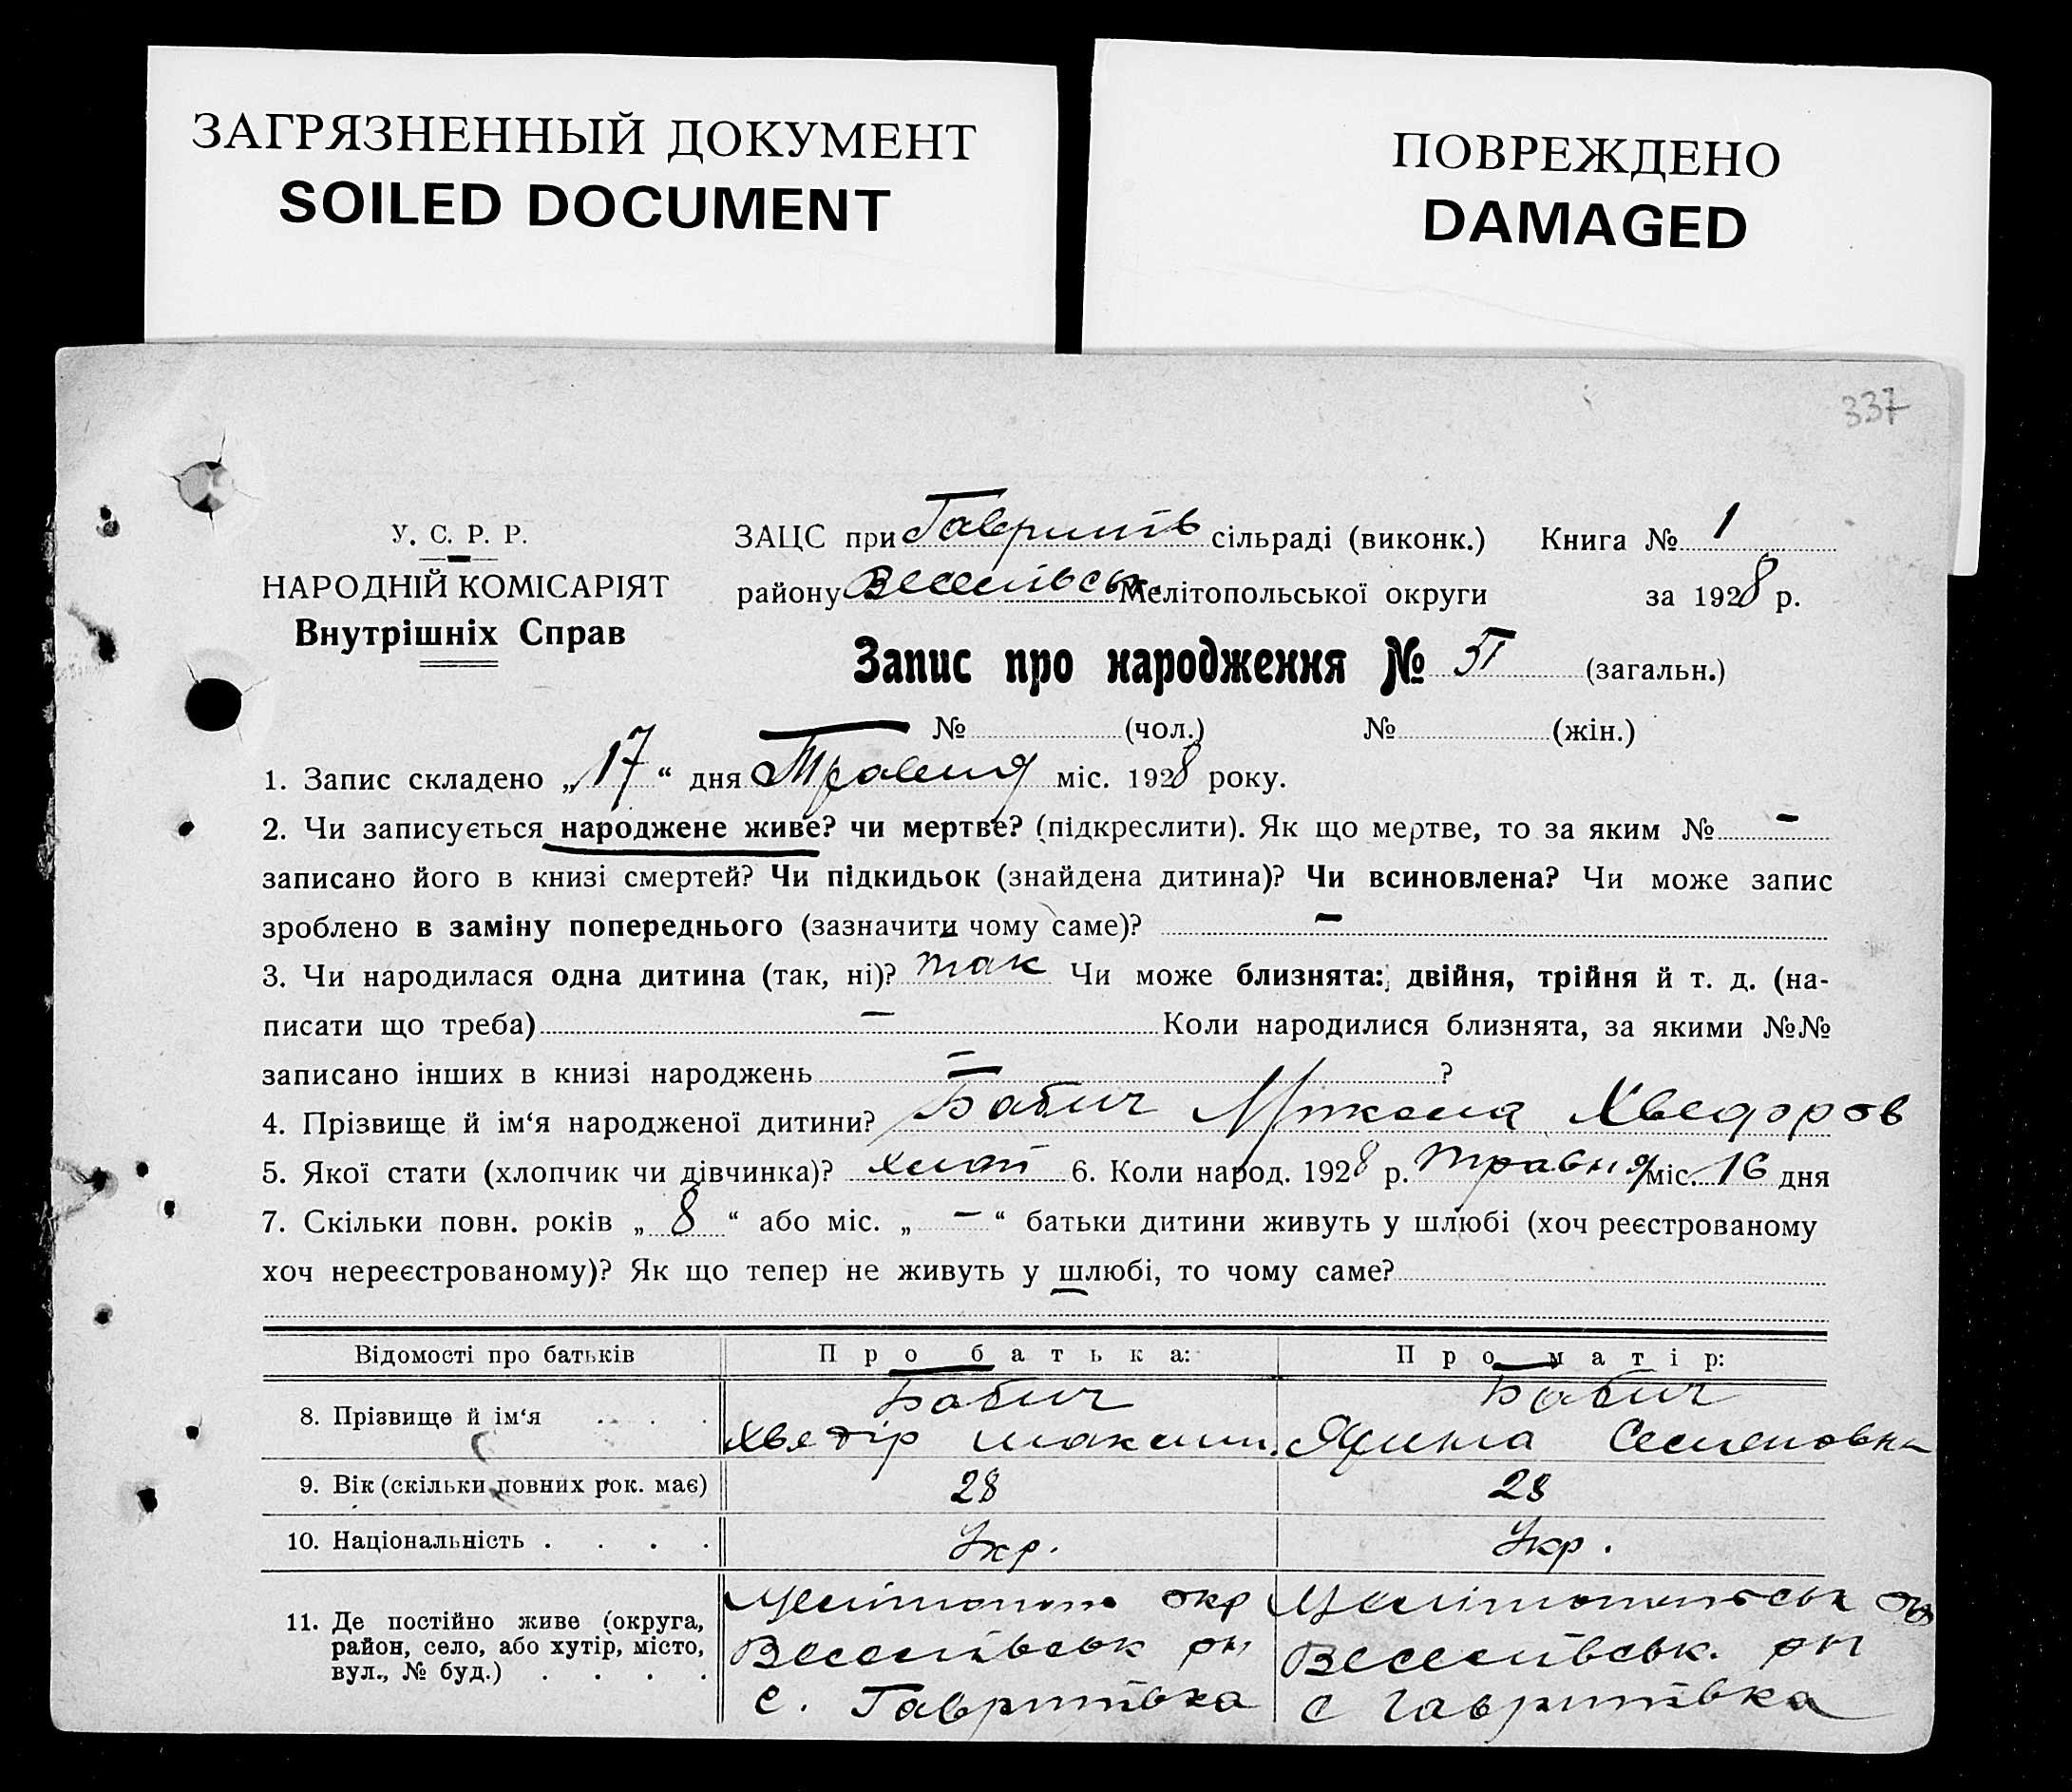 ЗАГРЯЗНЕННЫЙ ДОКУМЕНТ
SOILED DOCUMENT
ПОВРЕЖДЕНО
DAMAGED
337
У. С. Р. Р.
НАРОДНІЙ КОМІСАРІЯТ
Внутрішніх Справ
ЗАЦС при сільраді (виконк.) Книга № 1
району Веселівськ. Мелітопольської округи за 1928 р.
Запис про народження № 51 (загальн.)
№ (чол.) № (жін.)
1. Запис складено „17“ дня Травня міс. 1928 року.
2. Чи записується народжене живе? чи мертве? (підкреслити). Як що мертве, то за яким № -
записано його в книзі смертей? Чи підкидьок (знайдена дитина)? Чи всиновлена? Чи може запис
зроблено в заміну попереднього (зазначити чому саме)? -
3. Чи народилася одна дитина (так, ні)? так Чи може близнята: двійня, трійня й т. д. (на-
писати що треба) - Коли народилися близнята, за якими №№
записано інших в книзі народжень - ?
4. Прізвище й ім‘я народженої дитини? Бабич Микола Хведоров
5. Якої стати (хлопчик чи дівчинка)? хлоп 6. Коли народ. 1928 р. травня міс. 16 дня
7. Скільки повн. років „8“ або міс. „-“ батьки дитини живуть у шлюбі (хоч реєстрованому
хоч нереєстрованому)? Як що тепер не живуть у шлюбі, то чому саме?
Відомості про батьків Про батька: Про матір:
8. Прізвище й ім‘я . . . . Бабич Бабич
Хведір Максим. Семеновна
9. Вік (скільки повних рок. має) 28 28
10. Національність . . . . Укр. Укр.
11. Де постійно живе (округа, окр
район, село, або хутір, місто, Веселівськ рн Веселівськ. рн
вул., № буд.) . . . . с. Гаврилівка с Гаврилівка